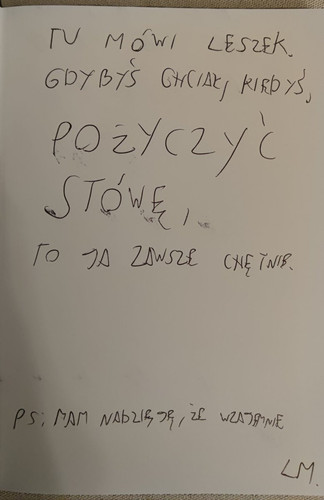 TU MÓWI LESZEK.
GDYBYŚ CHCIAŁ, KIEDYŚ,
POŻYCZYĆ
STÓWĘ,
TO JA ZAWSZE CHĘTNIE.
PS; MAM NADZIĘJĘ, ŻE WZAJEMNIE
LM.